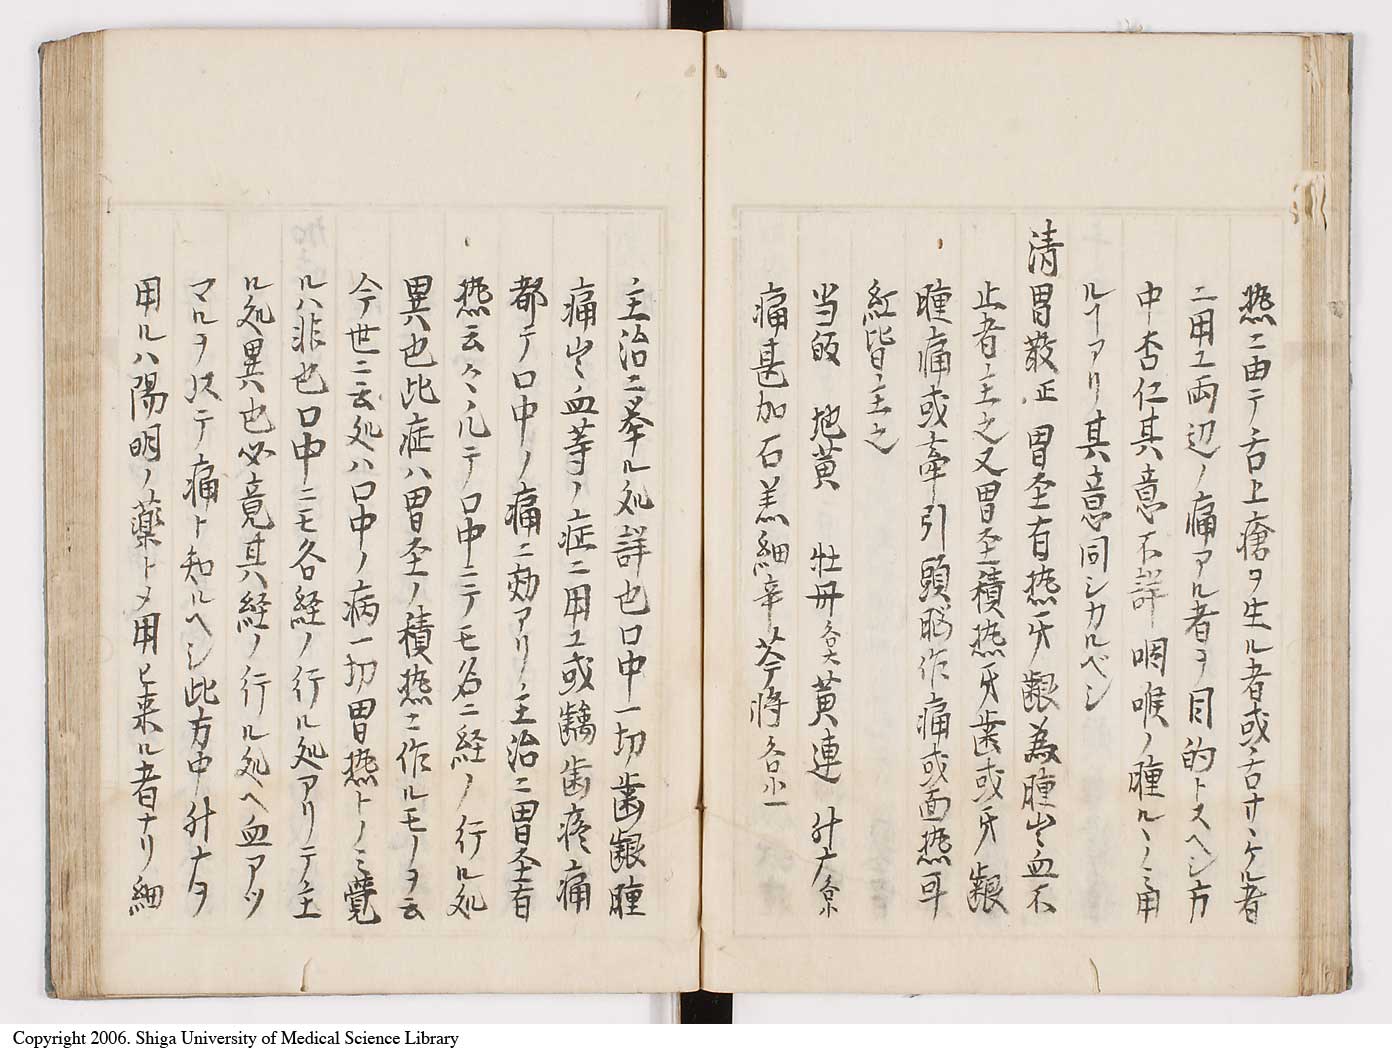 熱ニ由テ舌上瘡ヲ生ル者或舌サヽケル者
ニ用ユ両辺ノ痛アル者ヲ目的トスヘシ方
中杏仁其意不詳咽喉ノ腫ルヽノミ用
ルイアリ其意同シカルベシ
清
胃散 正 胃奎有熱牙齦為腫出血不
止者主之又胃奎積熱牙歯或牙齦
腫痛或牽引頭脳作痛或面熱耳
紅皆主之
当皈 地黄 牡丹各大 黄連 升广各小
痛甚加石羔細辛芩将各小一
主治ニ挙ル処詳也口中一切歯齦腫
痛出血等ノ症ニ用ユ或齲歯疼痛
都テ口中ノ痛ニ効アリ主治ニ胃奎有
熱云々凡テ口中ニテモ各ニ経ノ行ル処
異也此症ハ胃奎ノ積熱ニ作ルモノヲ云
今世ニ云処ハ口中ノ病一切胃熱トノミ覚
ルハ非也口中ニモ各経ノ行ル処アリテ主
ル処異也必竟其経ノ行ル処ヘ血アツ
マルヲ以テ痛ト知ルヘシ此方中升广ヲ
用ルハ陽明ノ薬トメ用ヒ来ル者ナリ細
Copyright 2006. Shiga University of Medical Science Library